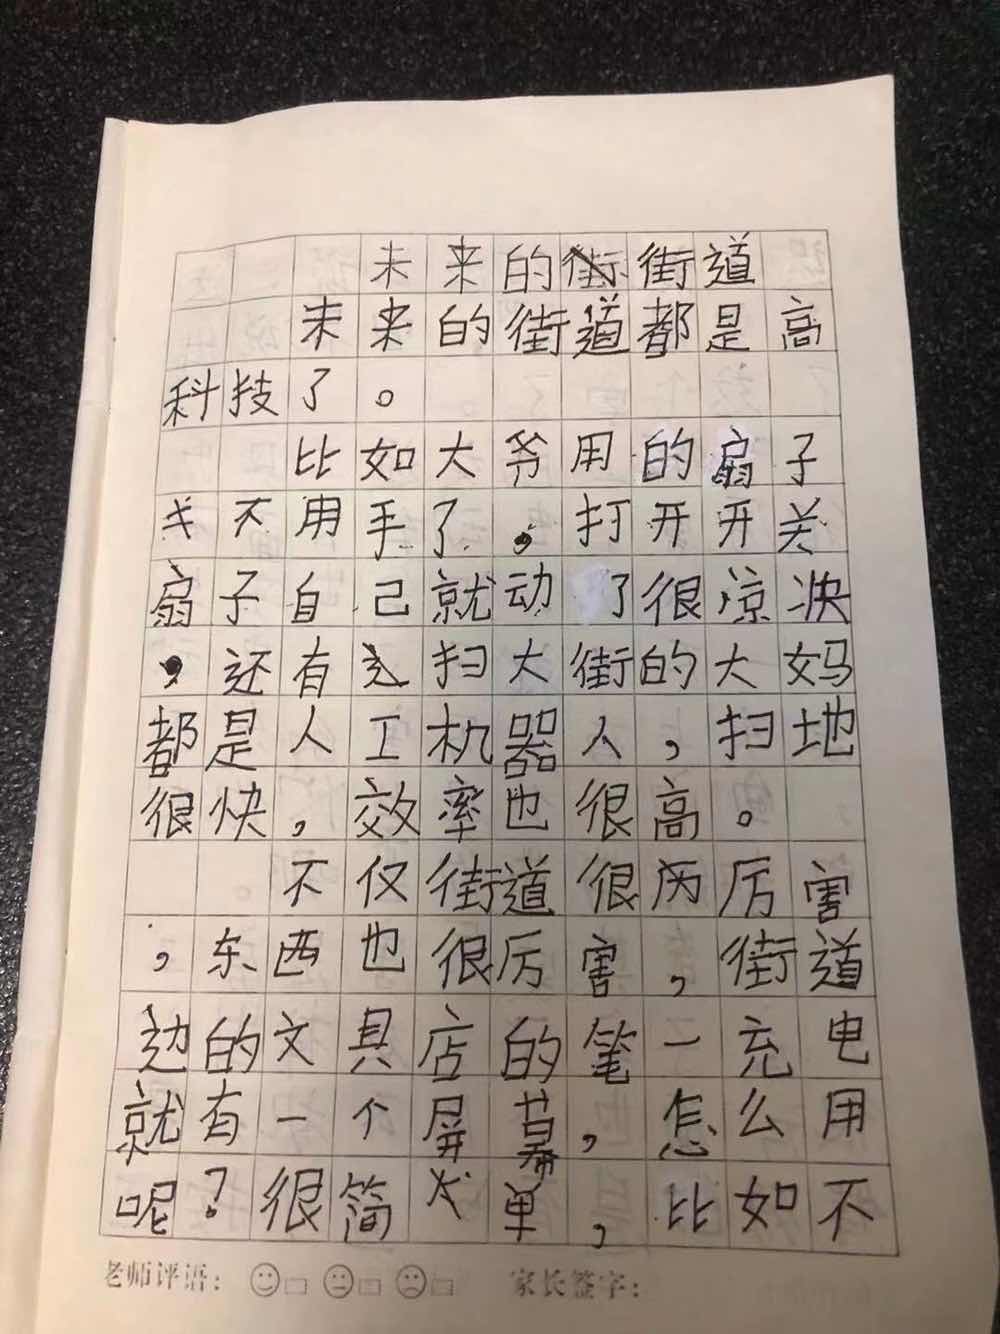 未来的街道
未来的街道都是高
科技了。
比如大爷用的扇子
不用手了。打开开关
扇子自己就动了很凉快
，还有扫大街的大妈
都是人工机器人，扫地
很快，效率也很高。
不仅街道很厉害
，东西也很厉害，街道
边的文具店的笔一充电
就有一个屏幕，怎么用
呢？很简单，比如不
老师评语： 家长签字：